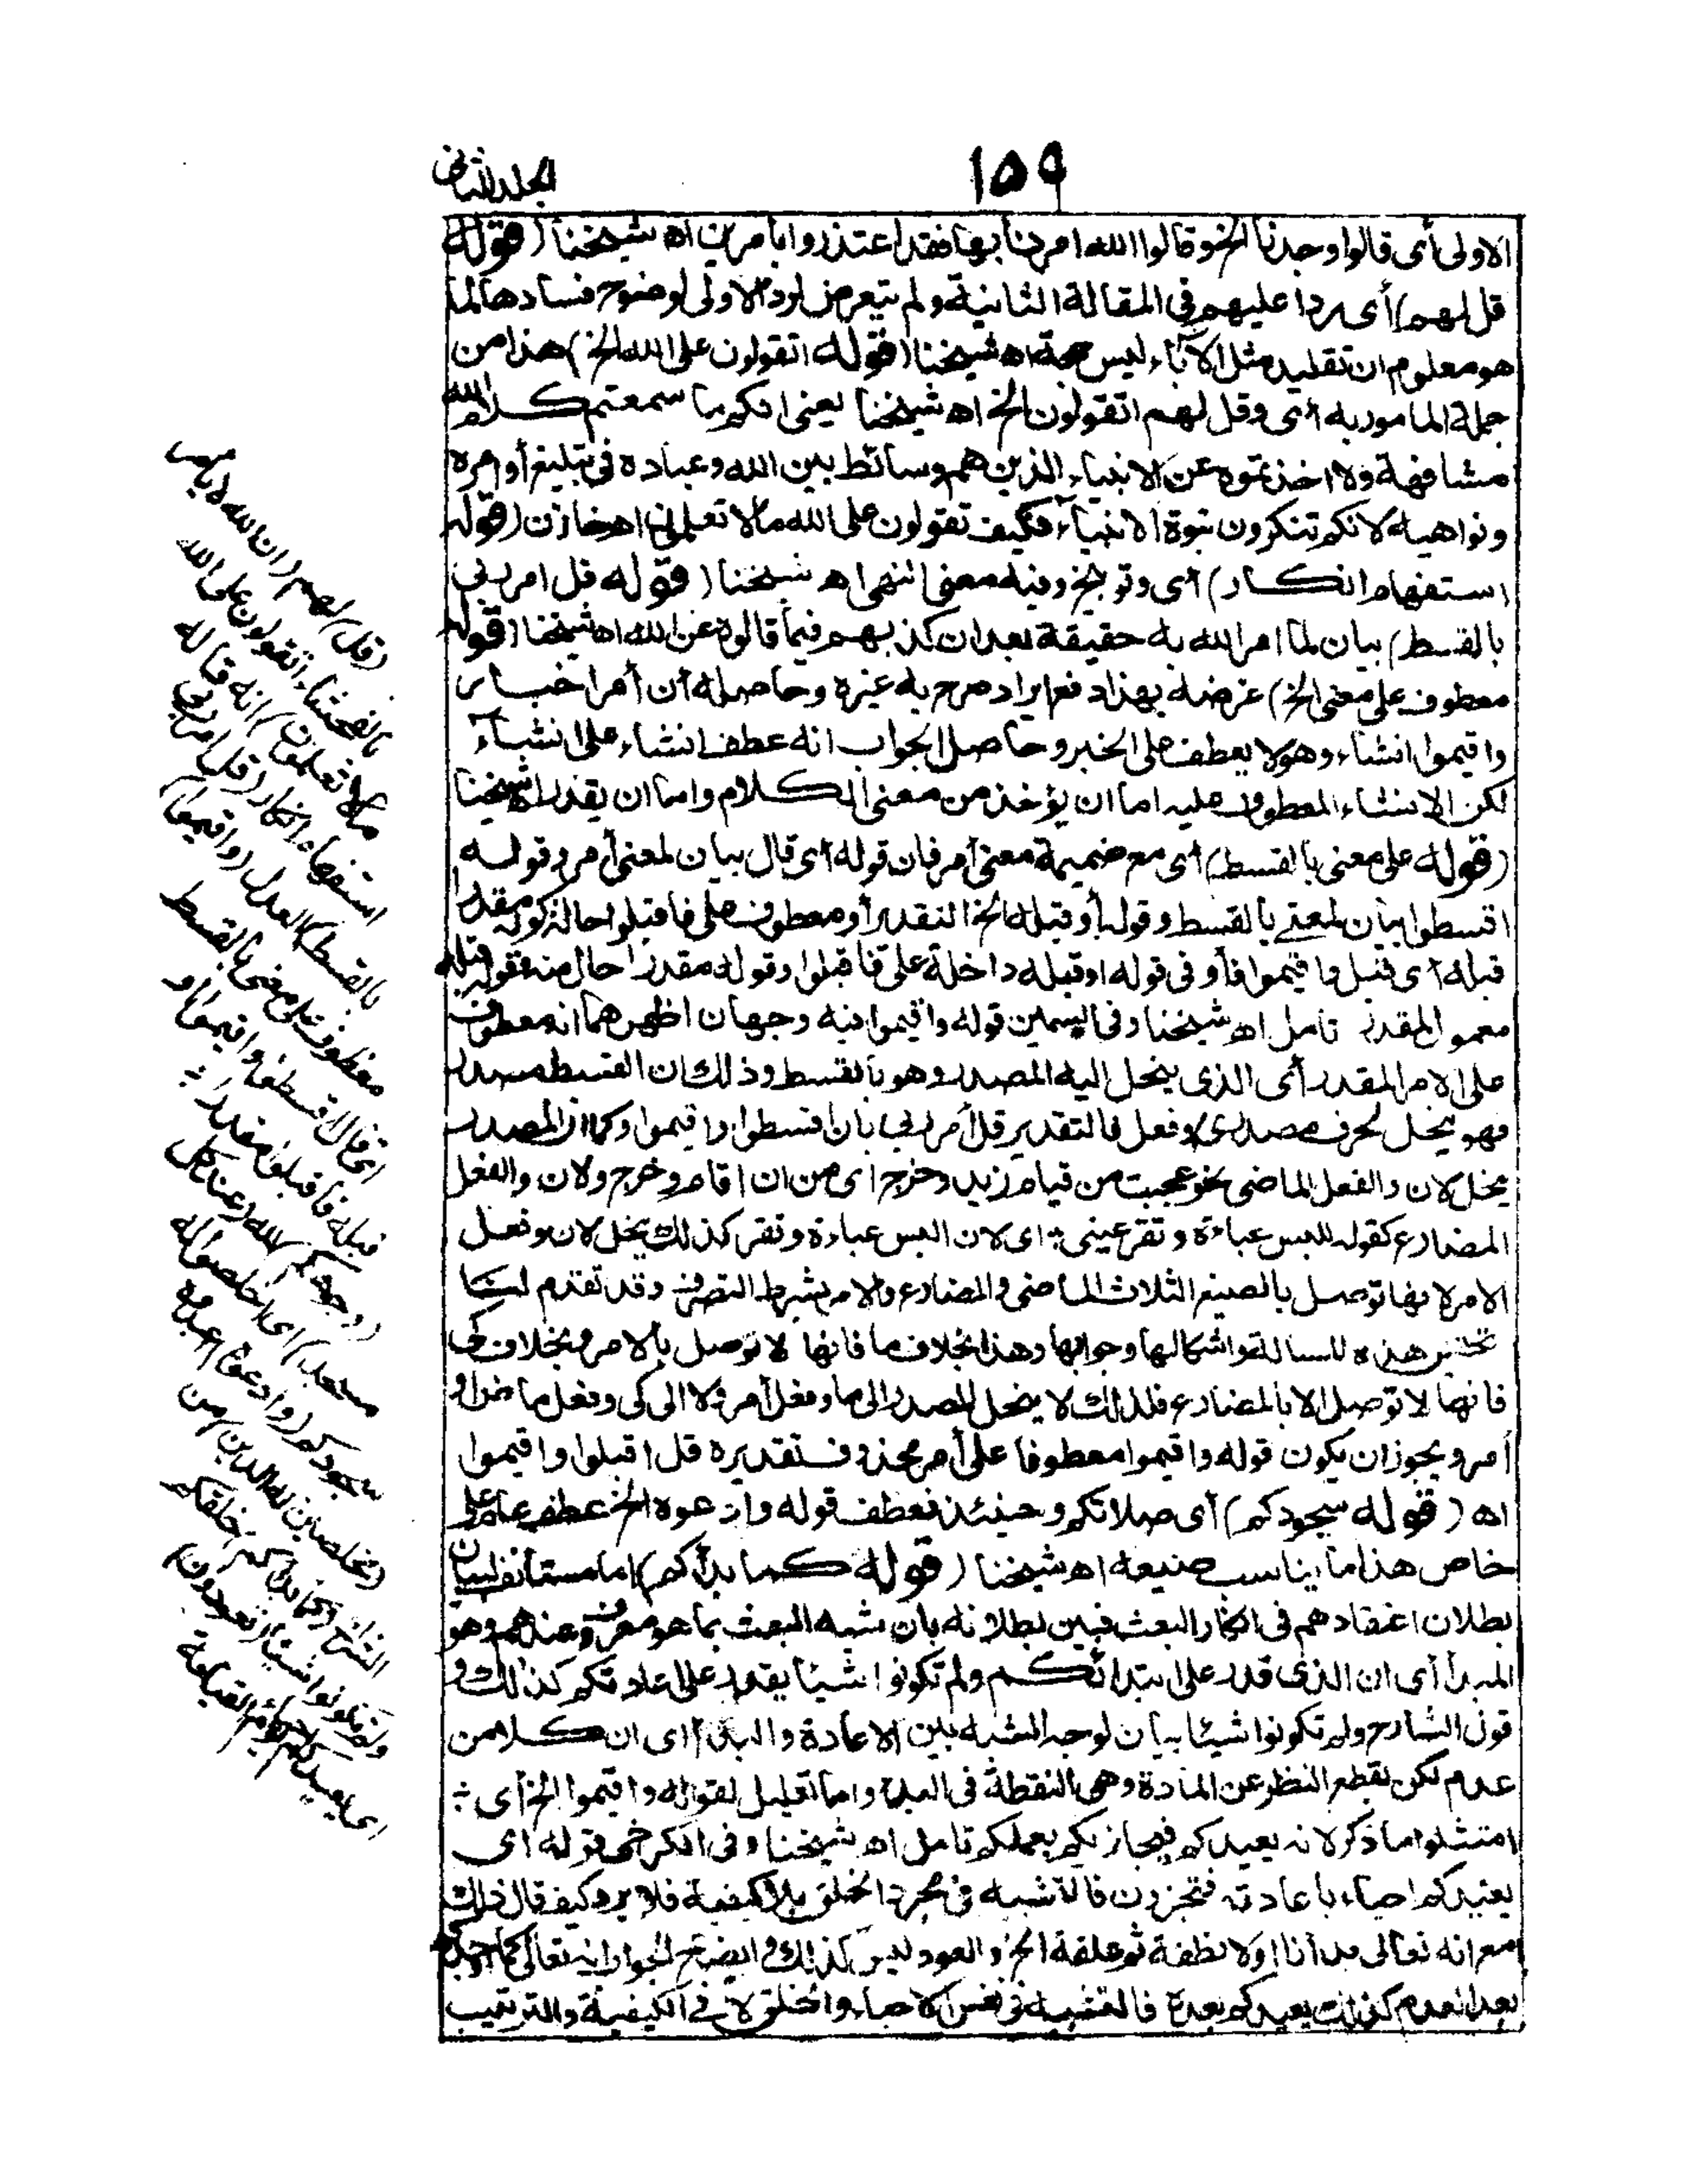 ١٥٩
الجلد الثانى
الاولى أى قالوا وجدنا الخ وقالوا الله امرنا بها فقد اعتذروا بأمرين اه شيخنا (قوله
قل لهم) أى ردا عليهم فى المقالة الثانية ولم يتعرض لرد الاولى لوضوح فسادها لما
هو معلوم ان تقليد مثل الآباء ليس حجة اه شيخنا (قوله اتقولون على الله الخ) هذا من
جملة المامور به أى وقل لهم اتقولون الخ اه شيخنا يعنى انكم ما سمعتم كلام الله
مشافهة ولا اخذتموه عن الانبياء الذين هم وسائط بين الله وعباده فى تبليغ أوامره
ونواهيه لانكم تنكرون نبوة الانبياء فكيف تقولون على الله ما لا تعلمون اه خازن (قوله
استفهام انكار) أى وتوبيخ وفيه معنى النهى اه شيخنا (قوله قل امر ربى
بالقسط) بيان لما امر الله به حقيقة بعد ان كذبهم فيما قالوه عن الله اه شيخنا (قوله
معطوف على معنى الخ) غرضه بهذا دفع ايراد صرح به غيره وحاصله أن أمر اخبار
واقيموا انشاء وهو لا يعطف على الخبر وحاصل الجواب انه عطف انشاء على انشاء
لكن الانشاء المعطوف عليه اما ان يؤخذ من معنى الكلام واما ان يقدر اه شيخنا
(قوله على معنى بالقسط) أى مع ضميمة معنى أمر فان قوله أى قال بيان لمعنى أمر وقوله
اقسطوا بيان لمعنى بالقسط وقوله أو قبله الخ التقدير أو معطوف على فاقبلوا حالة كونه مقدرا
قبله أى قبل واقيموا فأو فى قوله او قبله داخلة على فاقبلوا وقوله مقدرا حال منه فقوله قبله
معمول المقدر تامل اه شيخنا وفى السمين قوله واقيموا فيه وجهان اظهرهما انه معطوف
على الامر المقدر أى الذى ينحل اليه المصدر وهو بالقسط وذلك ان القسط مصدر
فهو ينحل لحرف مصدرى وفعل فالتقدير قل أمر ربى بان اقسطوا واقيموا وكما ان المصدر
ينحل لان والفعل الماضى نحو عجبت من قيام زيد وخرج اى من ان اقام وخرج ولان والفعل
المضارع كقوله للبس عباءة وتقر عينى ؛ اى لان البس عباءة وتقر كذلك ينحل لان وفعل
الامر لانها توصل بالصيغ الثلاث الماضى والمضارع والامر بشرط التصرف وقد تقدم لنا
هذه المسالة واشكالها وجوابها وهذا بخلاف ما فانها لا توصل بالامر وبخلاف كى
فانها لا توصل الا بالمضارع فلذلك لا ينحل المصدر الى ما وفعل أمر ولا الى كى وفعل ماض او
أمر ويجوز ان يكون قوله واقيموا معطوفا على أمر محذوف تقديره قل اقبلوا واقيموا
اه (قوله سجودكم) أى صلاتكم وحينئذ فعطف قوله وادعوه الخ عطف عام على
خاص هذا ما يناسب صنيعه اه شيخنا (قوله كما بدأكم) اما مستانف لبيان
بطلان اعتقادهم فى انكار البعث فبين بطلانه بان شبه البعث بما هو معروف عندهم وهو
المبدأ أى ان الذى قدر على ابتدائكم ولم تكونوا شيئا يقدر على اعادتكم كذلك و
قول الشارح ولم تكونوا شيئا بيان لوجه الشبه بين الاعادة والبدأ اى ان كلا من
عدم لكن بقطع النظر عن المادة وهى النقطة فى المبدأ واما تعليل لقوله واقيموا الخ أى ؛
امتثلوا ما ذكر لانه يعيدكم فيجازيكم بعملكم تامل اه شيخنا وفى الكرخى قوله اى
يعيدكم احياء باعادته فتجزون فالتشبيه فى مجرد الخلق بلا كيفية فلا يرد كيف قال ذلك
مع انه تعالى بدأنا اولا نطفة ثم علقة الخ والعود ليس كذلك وايضاح الجواب انه تعالى كما اوجدكم
بعد العدم كذلك يعيدكم بعده فالتشبيه فى نفس الاحياء والخلق لا فى الكيفية والترتيب
(قل) لهم (ان الله لا يامر
بالفحشاء اتقولون على الله
ما لا تعلمون) انه قاله
استفهام انكار (قل امر ربى
بالقسط) العدل (واقيموا)
معطوف على معنى بالقسط
اى قال اقسطوا واقيموا او
قبله فاقبلوا مقدرا ؛
(وجوهكم) لله (عند كل
مسجد) اى اخلصوا له
سجودكم (وادعوه) اعبدوه
(مخلصين له الدين) من
الشرك (كما بدأكم) خلقكم
ولم تكونوا شيئا (تعودون)
اى يعيدكم احياء يوم القيامة